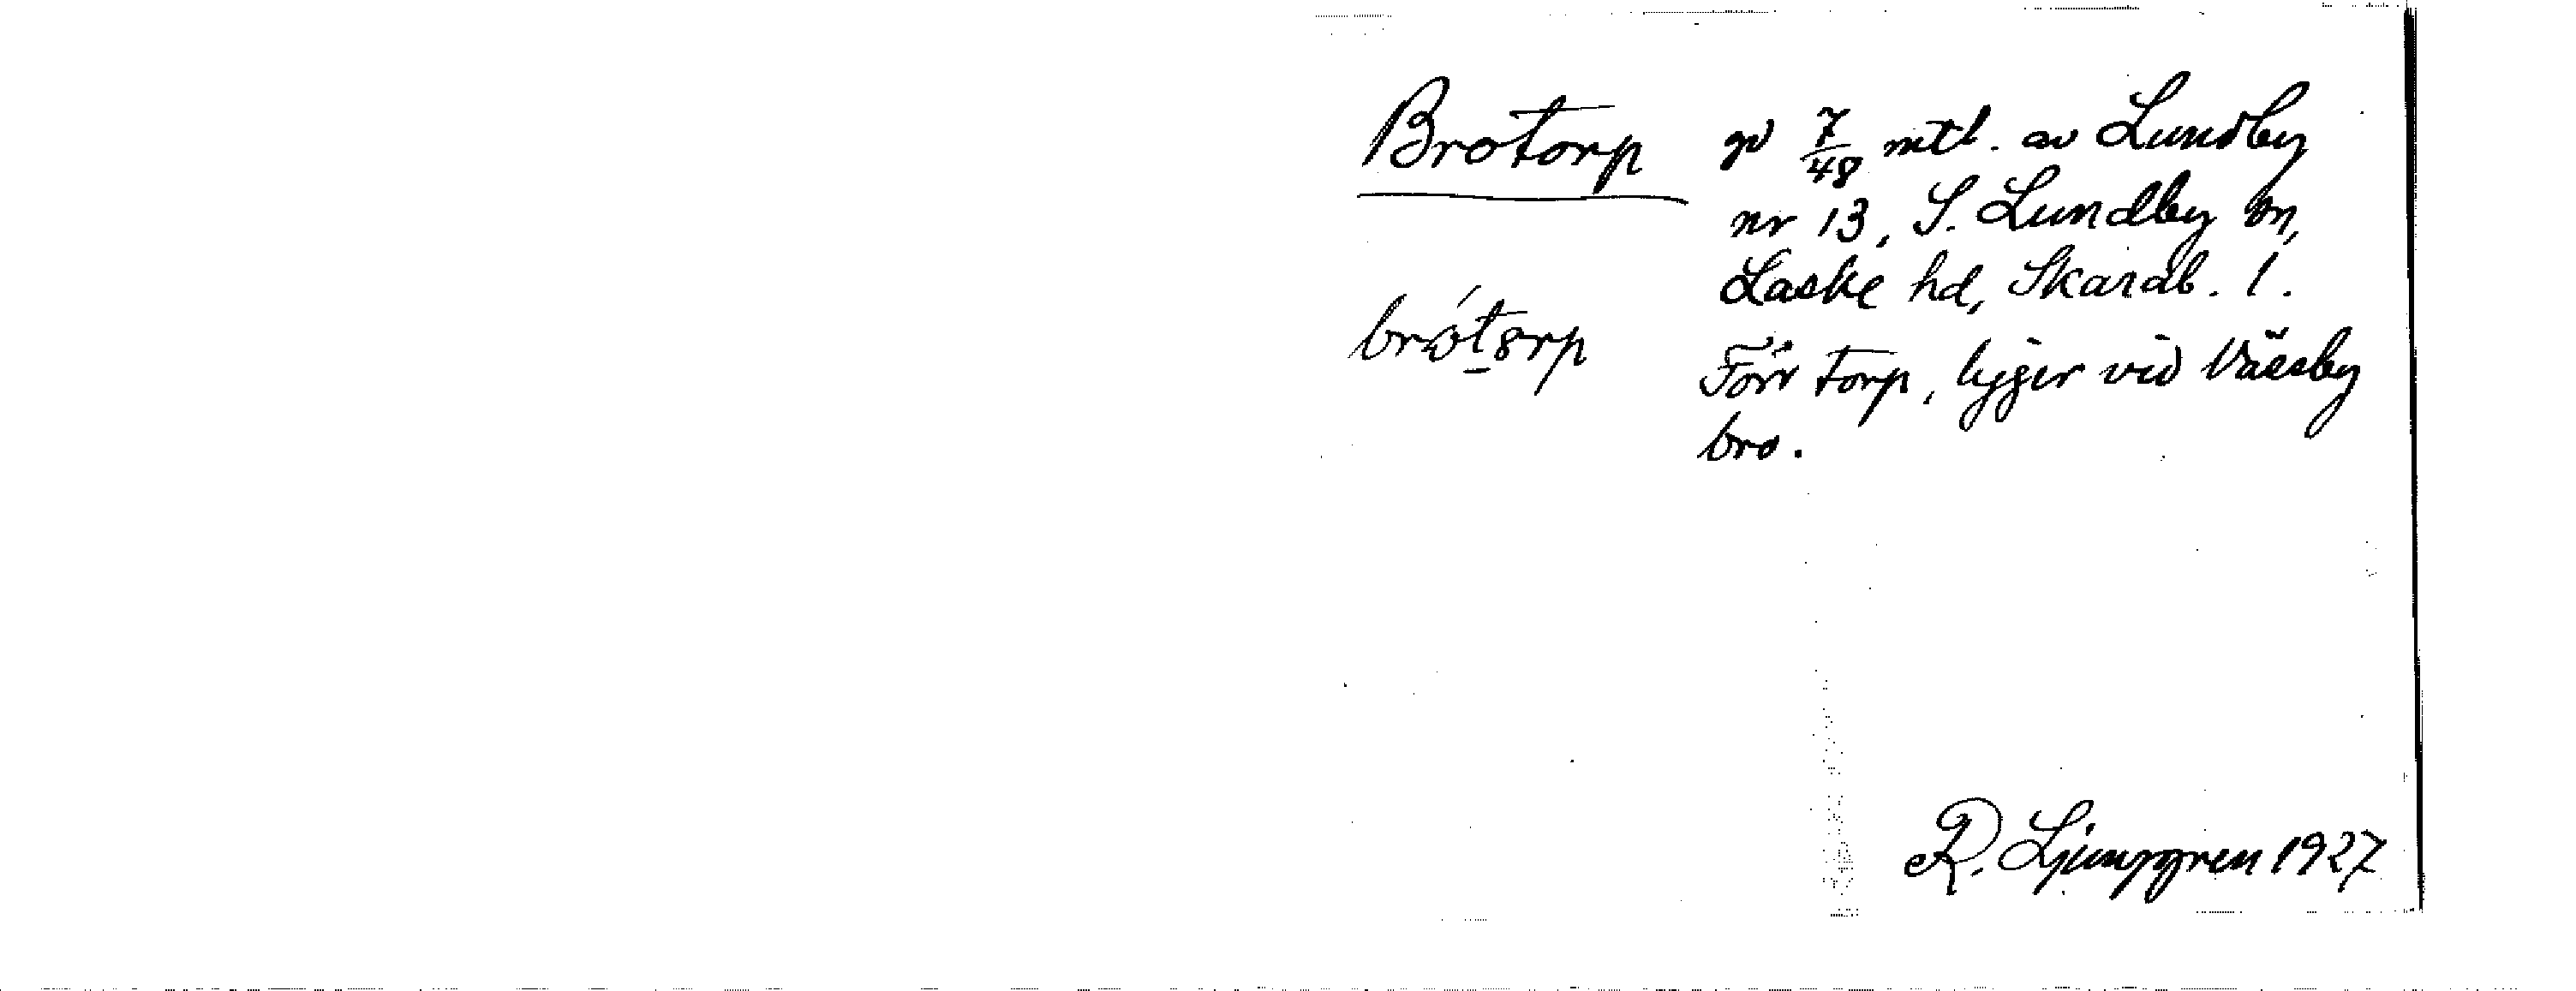 Brotorp gd 7/48 mtl. av Lundby
nr 13, S. Lundby sn,
Laske hd, Skarab. l.
brótorp Förr torp, ligger vid Väesby
bro.
R. Ljunggren 1927